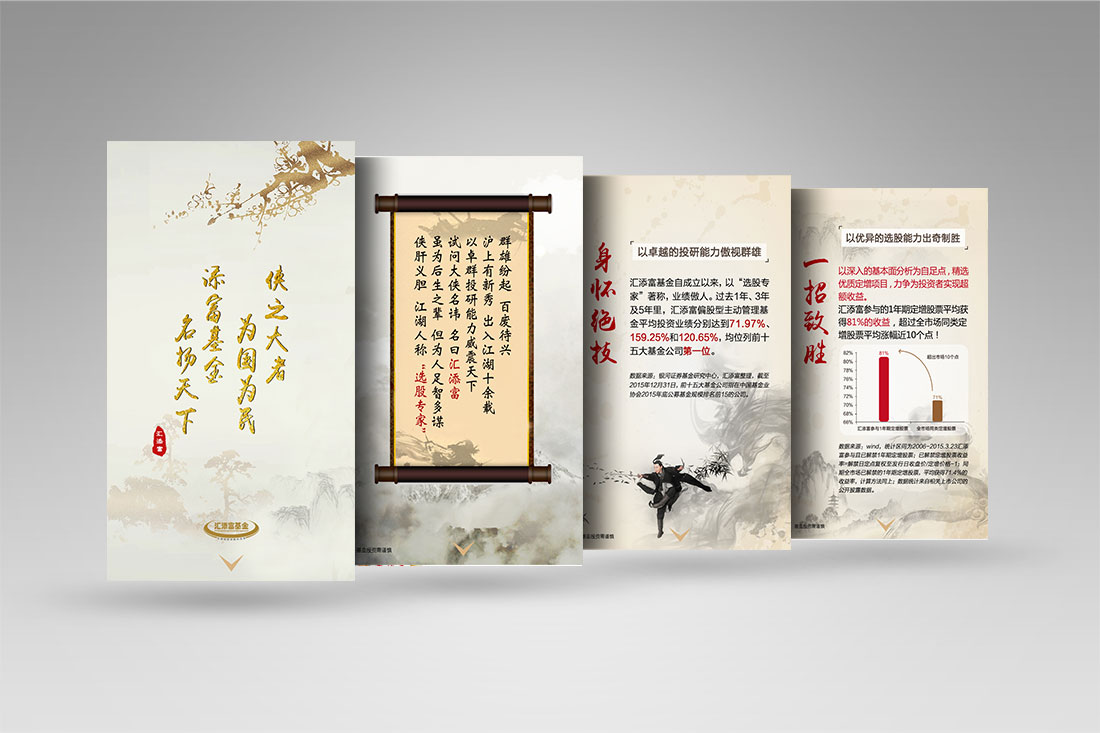 侠之大者
为国为民
添富基金
名扬天下
汇添富
汇添富基金
群雄纷起 百废待兴
沪上有新秀 出入江湖十余载
以卓群投研能力威震天下
试问大侠名讳 名曰汇添富
虽为后生之辈 但为人足智多谋
侠肝义胆 江湖人称“选股专家”
身怀绝技
以卓越的投研能力傲视群雄
汇添富基金自成立以来，以“选股专
家”著称，业绩做人。过去1年、3年
及5年里，汇添富偏股型主动管理基
金平均投资业绩分别达到71.97%、
159.25%和120.65%，均位列前十
五大基金公司第一位。
数据来源：银河证券基金研究中心，汇添富整理，截至
2015年12月31日，前十五大基金公司指在中国基金业
协会2015年底公募基金规模排名前15的公司。
一招致胜
以优异的选股能力出奇制胜
以深入的基本面分析为自足点，精选
优质定增项目，力争为投资者实现超
额收益。
汇添富参与的1年期定增股票平均获
得81%的收益，超过全市场同类定
增股票平均涨幅近10个点！
82%
80%
78%
76%
74%
72%
70%
68%
66%
81%
超出市场10个点
71%
汇添富参与1年期定增股票
全市场同类定增股票
数据来源：wind，统计区间为2006-2015.3.23汇添
富参与且已解禁1年期定增股票；已解禁定增股票收益
率=解禁日定点复权至发行日收盘价/定增价格-1；同
期全市场已解禁的1年期定增股票，平均获得71.4%的
收益率，计算方法同上；数据统计来自相关上市公司的
公开披露数据。